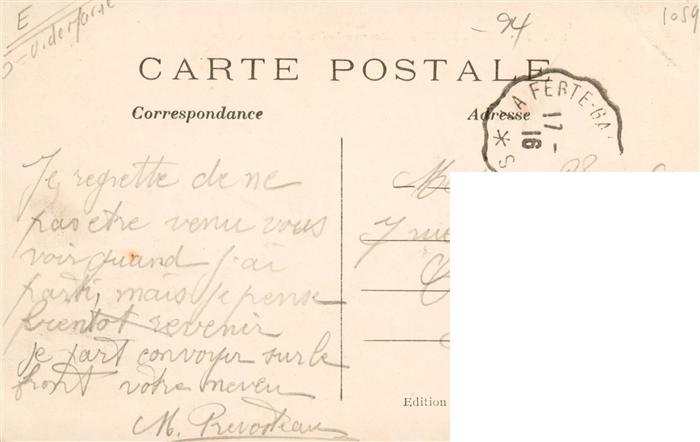 E
- 94
1059
CARTE POSTALE
Correspondance
Adresse
A FERTE-GA
17 -
16
* S
Je regrette de ne
pas etre venu vous
voir quand j'ai
parti, mais je pense
bientot revenir
je part convoyer sur le
front votre neveu
M. Prevosteau
7 rue
Edition